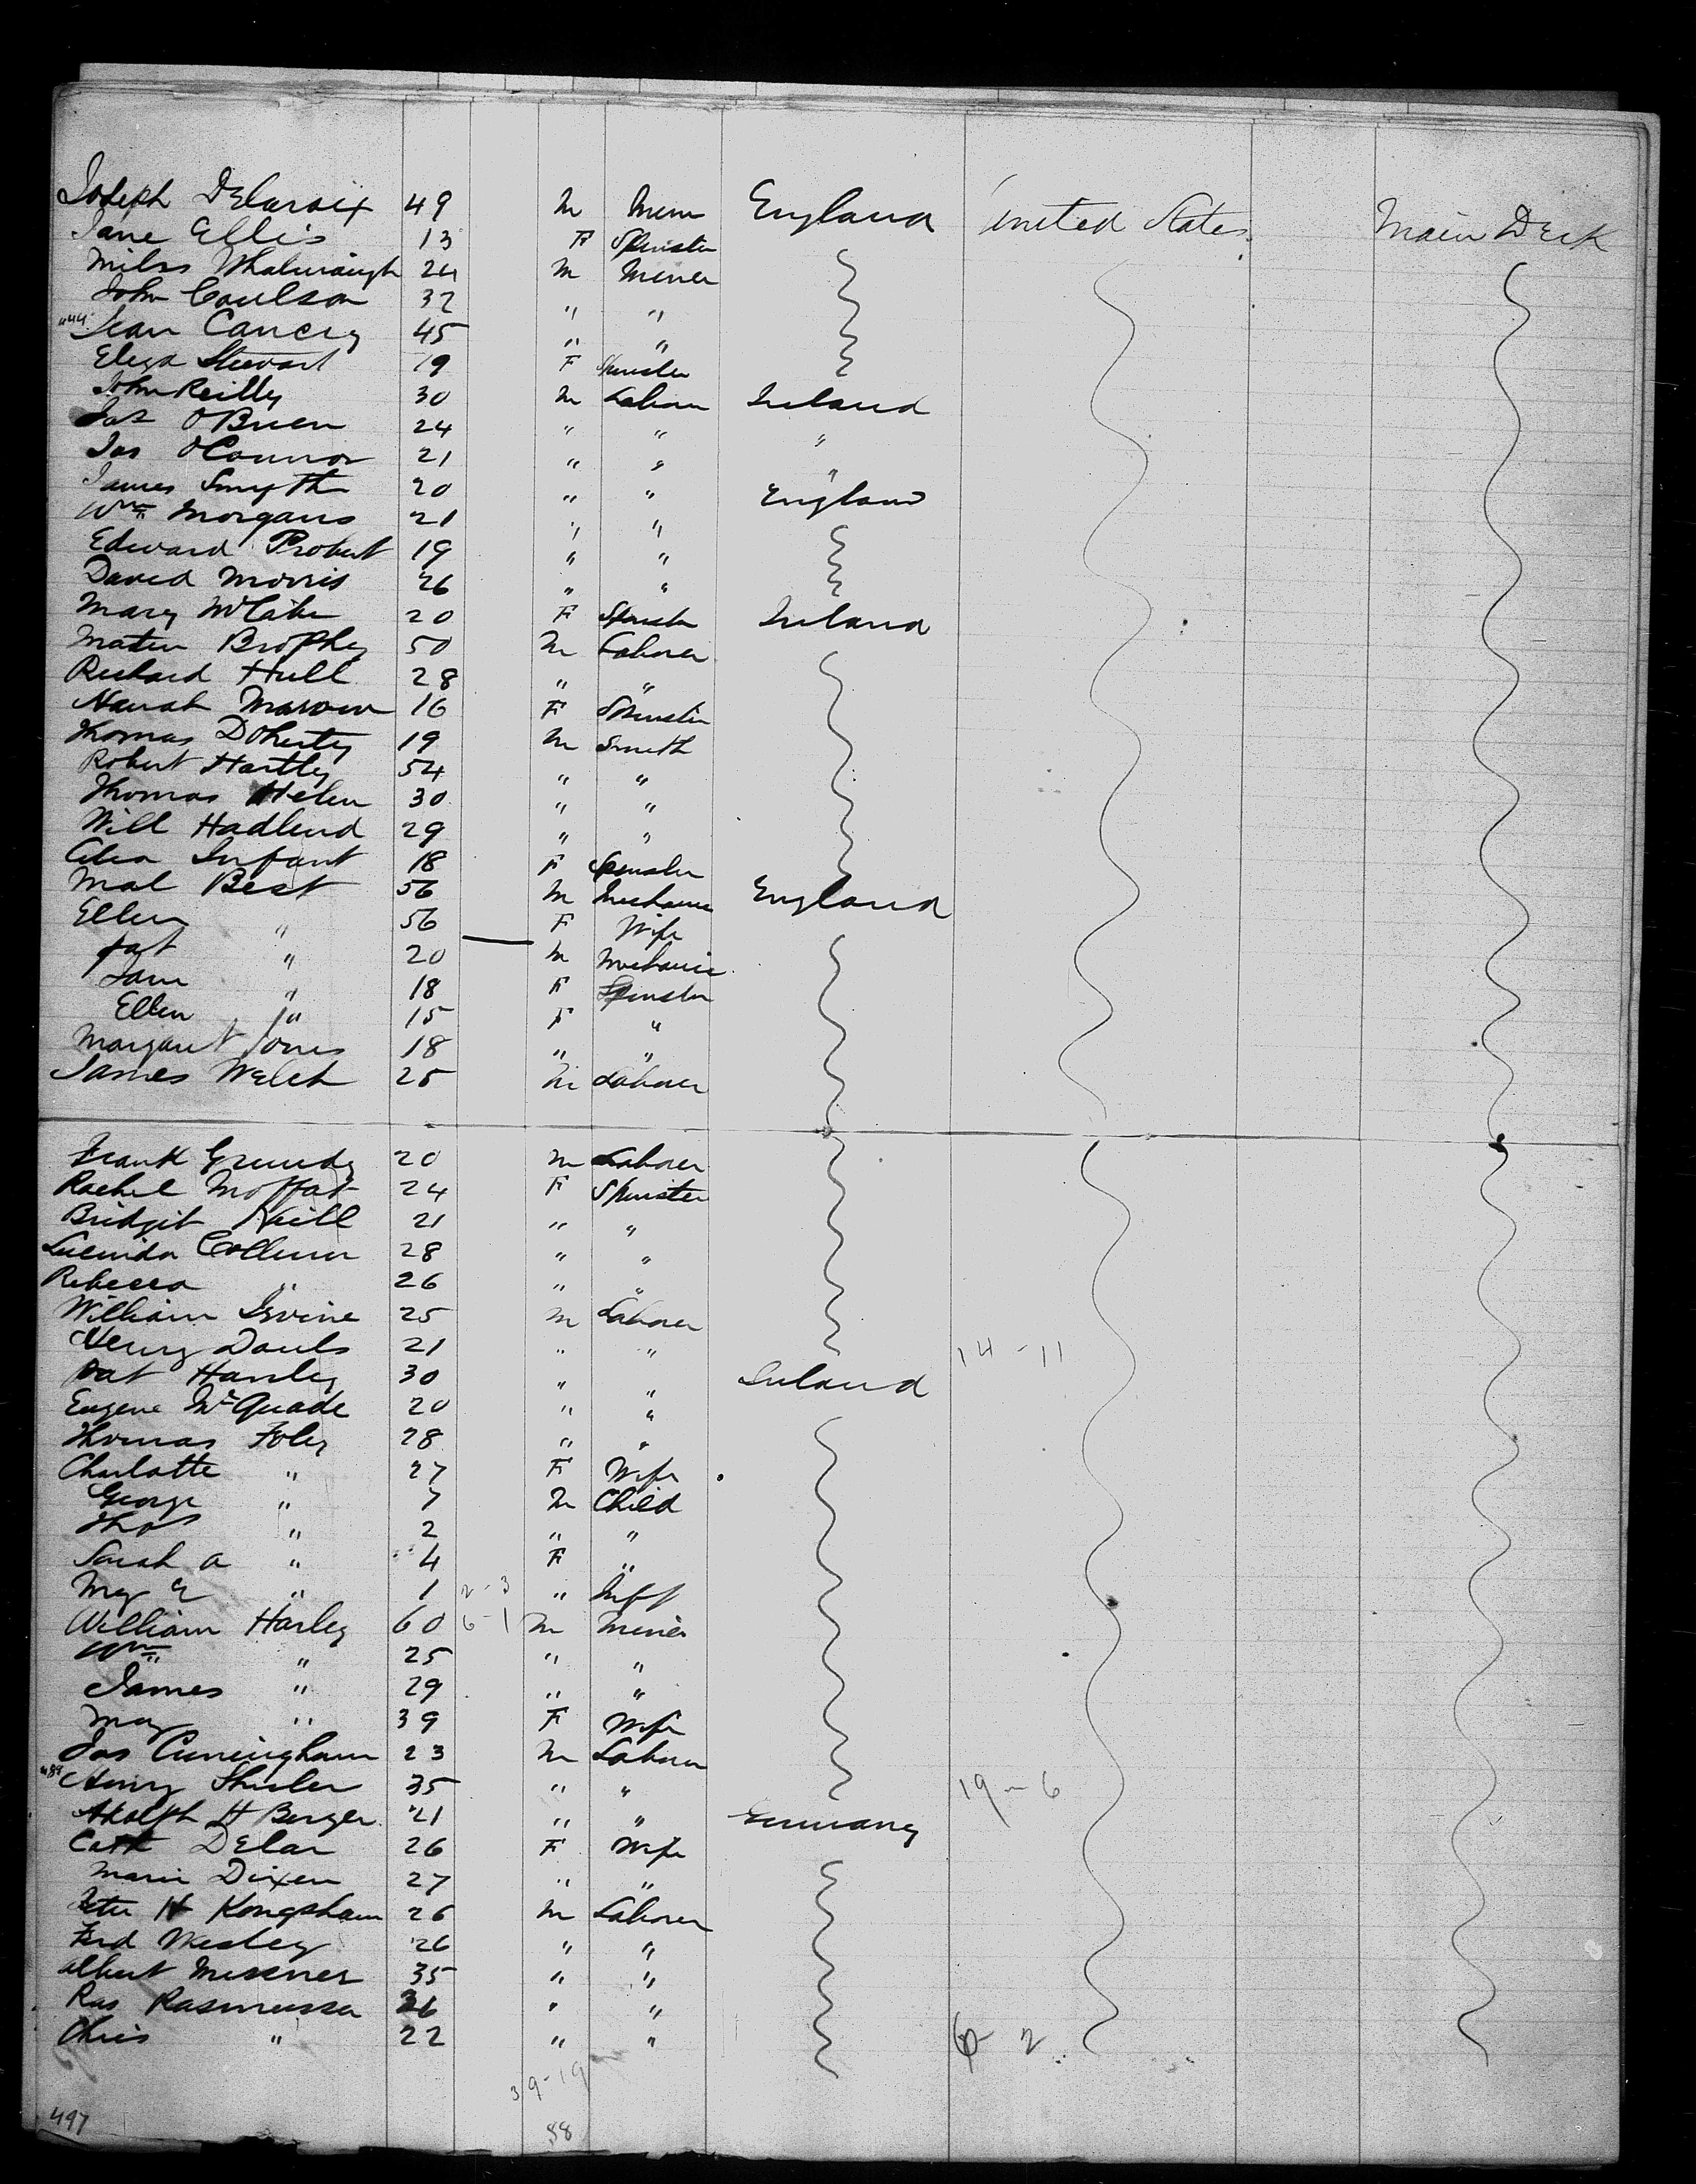 Joseph Delaroix 49 M Miner England United States Main Deck
Jane Ellis 13 F Spinster
Miles 24 M Miner
John Coulson 32 " "
Jean 45 " "
Eliza Stewart 19 F Spinster
John Reilly 30 M Labour Ireland
Jas O'Brien 24 " " "
Jas O'Connor 21 " " "
James Smyth 20 " " England
Wm Morgans 21 " "
Edward Probert 19 " "
David Morris 26 " "
Mary McCabe 20 F Spinster Ireland
Brophy 50 M Laborer
Richard Hull 28 " "
Hanah 16 F Spinster
Thomas Doherty 19 M Smith
Robert Hartley 54 " "
Thomas Helen 30 " "
Will Hadlend 29 " "
Infant 18 F Spinster
Mal Best 56 M Mechanic England
Ellen " 56 F Wife
Pat " 20 M Mechanic
Jane " 18 F Spinster
Ellen " 15 F "
Margaret Jones 18 " "
James Welch 25 M Laborer
Frank Grundy 20 M Laborer
Rachel Moffat 24 F Spinster
Bridgit Neill 21 " "
Lucinda 28 " "
Rebecca " 26 " "
William Irvine 25 M Laborer
Henry 21 " " 14-11
Pat Hanley 30 " " Ireland
Eugene McQuade 20 " "
Thomas Foley 28 " "
Charlotte " 27 F Wife
George " 7 M Child
Thos " 2 " "
Sarah A " 4 F "
" 1 2-3 " Inft
William Harley 60 6-1 M Miner
Wm " 25 " "
James " 29 " "
May " 39 F Wife
Jas Cuningham 23 M Laborer
Henry 35 " " 19-6
Adolph H Berger 21 " " Germany
Cath Delar 26 F Wife
Marie Dixen 27 " "
Peter H Kongsham 26 M Laborer
Ferd Wesley 26 " "
Albert 35 " "
Ras Rasmussen 26 " "
Chris " 22 " " 6-2
39-19
497 58